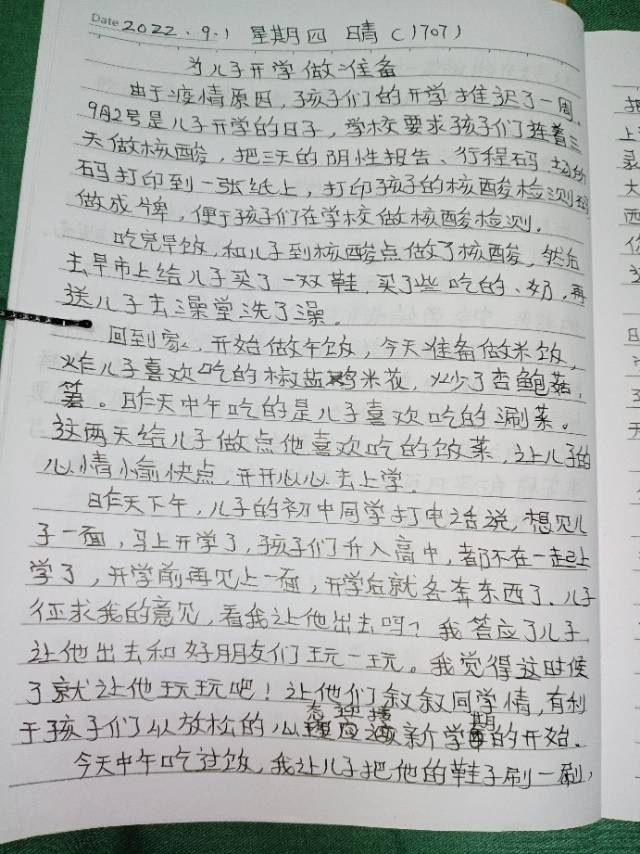 Date 2022.9.1 星期四 晴 (1707)
为儿子开学做准备
由于疫情原因,孩子们的开学推迟了一周。
9月2号是儿子开学的日子,学校要求孩子们连着三
天做核酸,把三天的阴性报告、行程码、场所
码打印到一张纸上,打印孩子的核酸检测码
做成牌,便于孩子们在学校做核酸检测。
吃完早饭,和儿子到核酸点做了核酸,然后
去早市上给儿子买了一双鞋,买了些吃的、奶,再
送儿子去澡堂洗了澡。
回到家,开始做午饭,今天准备做米饭,
炸儿子喜欢吃的椒盐鸡米花,炒了杏鲍菇,
笋。昨天中午吃的是儿子喜欢吃的涮菜。
这两天给儿子做点他喜欢吃的饭菜,让儿子的
心情愉快点,开开心心去上学。
昨天下午,儿子的初中同学打电话说,想见儿
子一面,马上开学了,孩子们升入高中,都不在一起上
学了,开学前再见上一面,开学后就各奔东西了。儿子
征求我的意见,看我让他出去吗?我答应了儿子
让他出去和好朋友们玩一玩。我觉得这时候
了就让他玩玩吧!让他们叙叙同学情,有利
于孩子们以放松的心态迎接新学期的开始。
今天中午吃过饭,我让儿子把他的鞋子刷一刷,